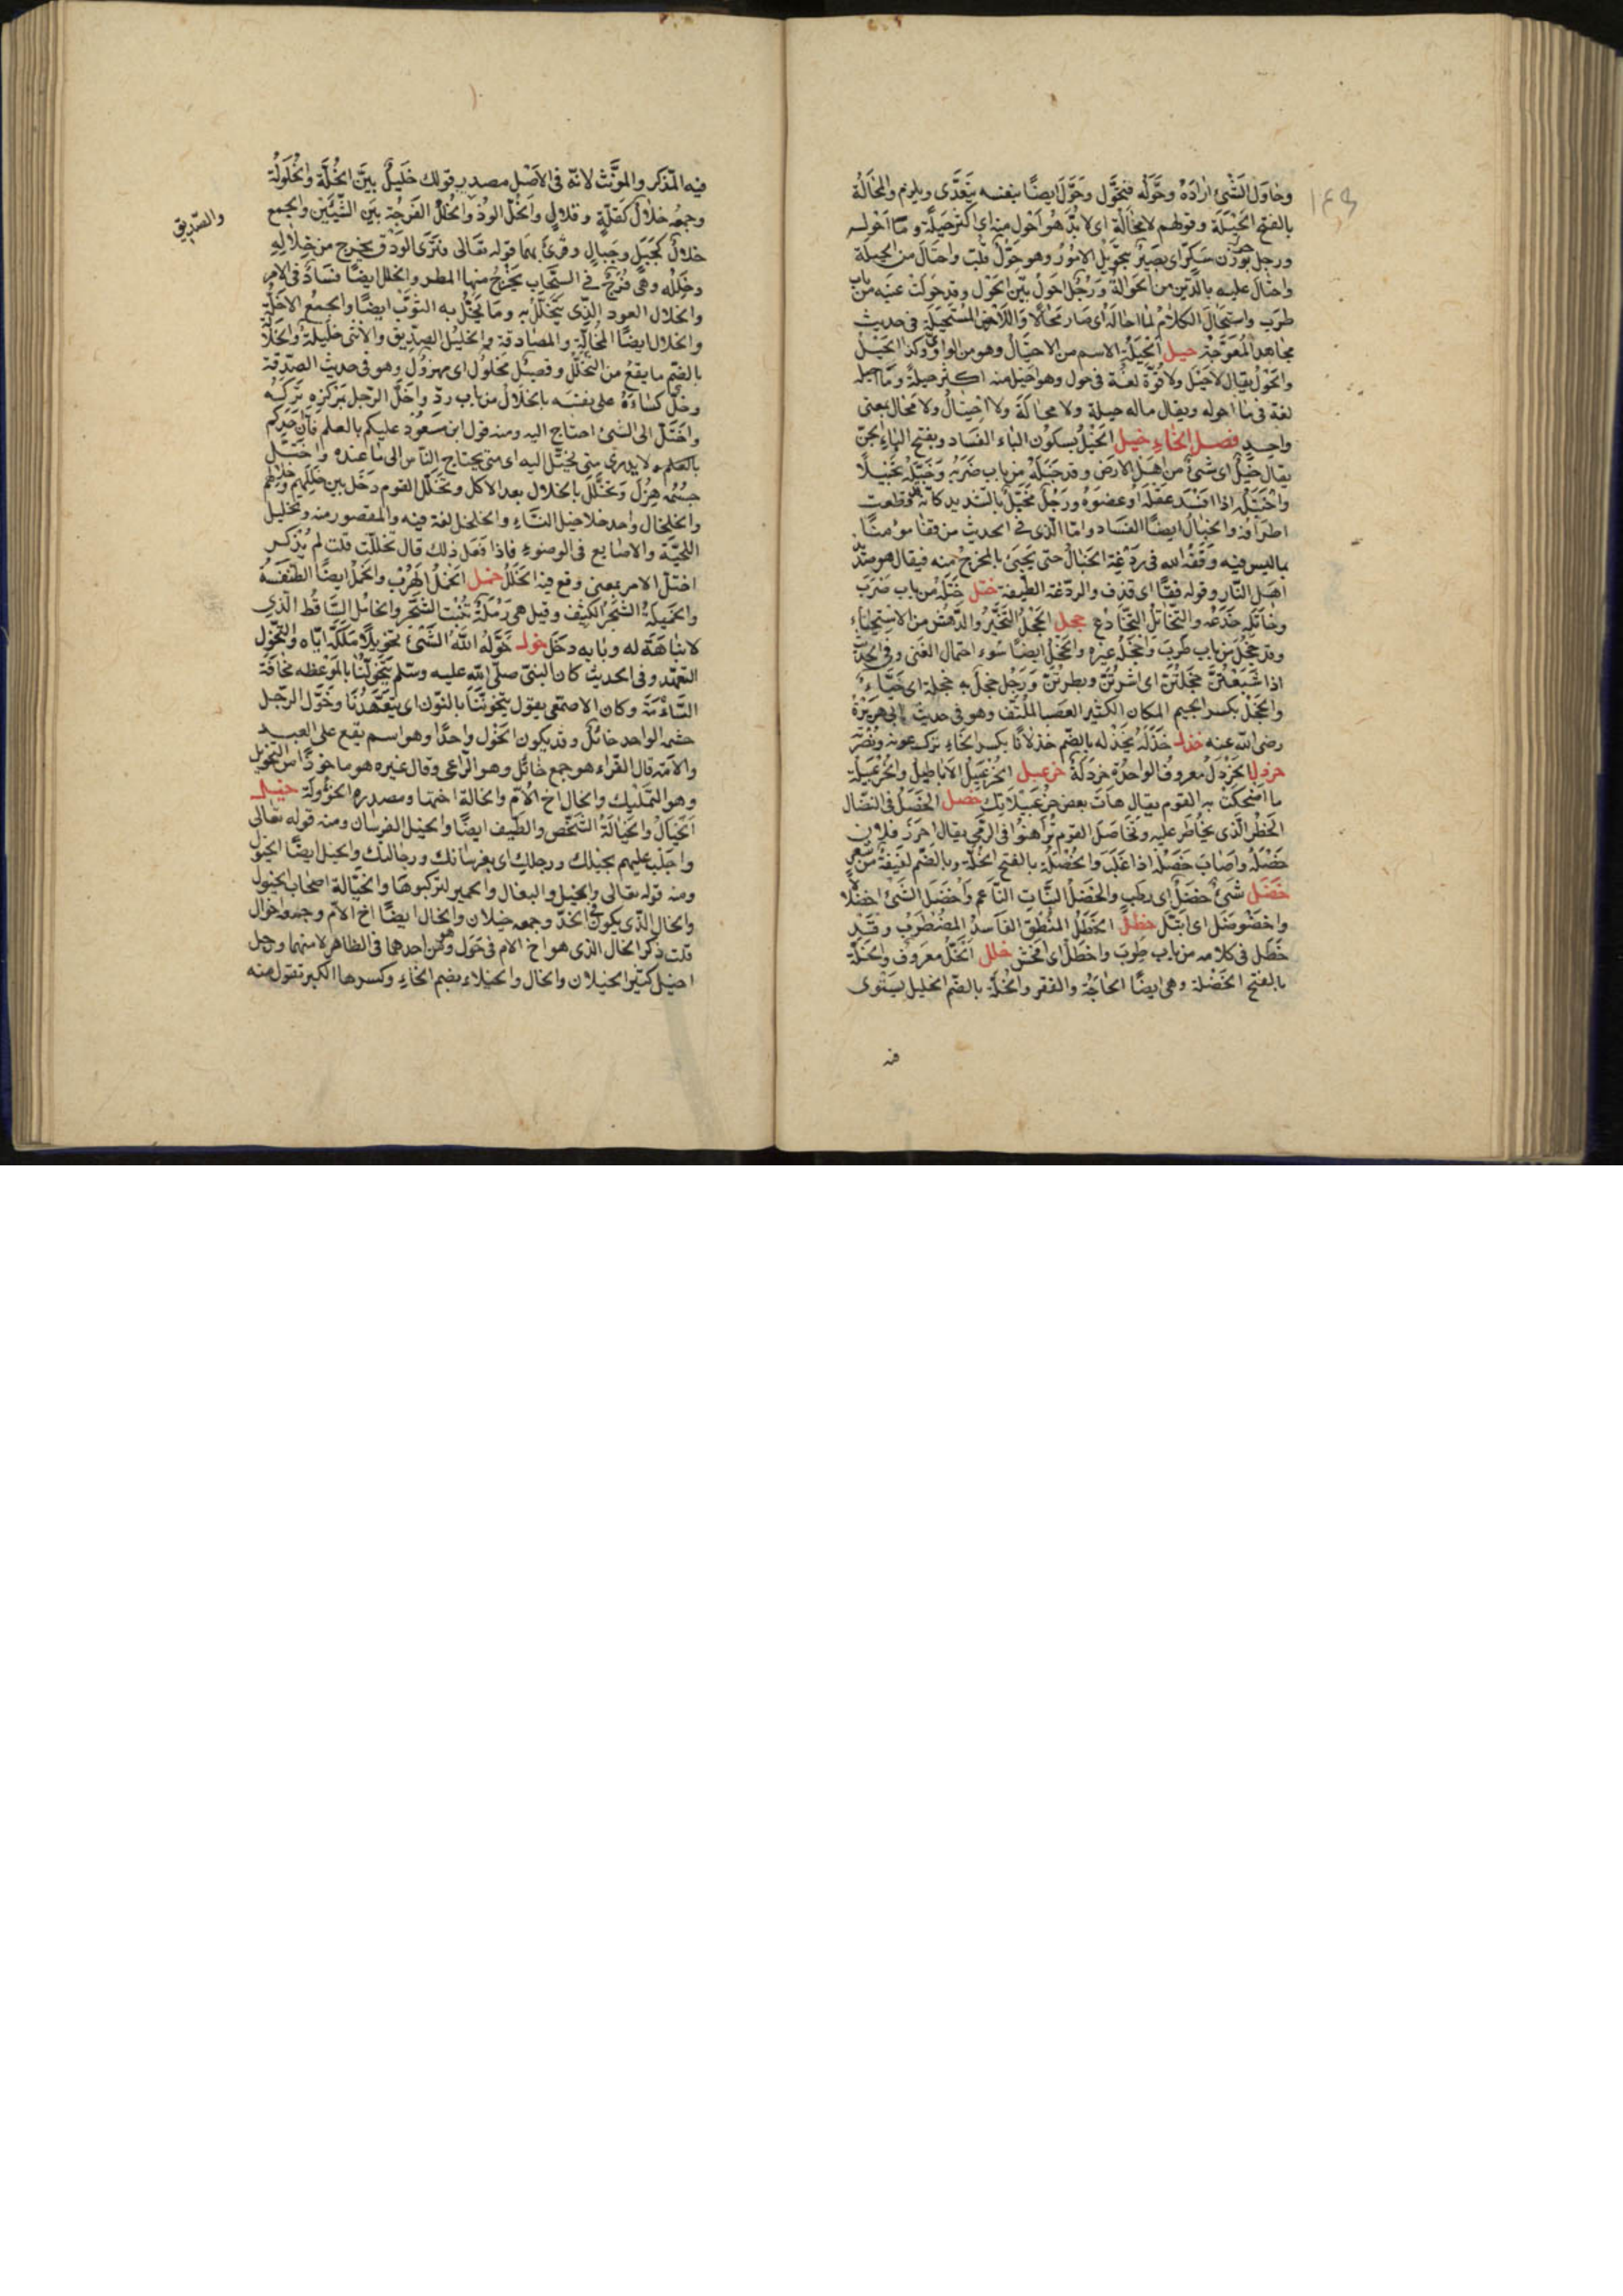 وحاول الشئ اراده وحوله فتحول وحول ايضا بنفسه يتعدى ويلزم والمحالة
بالفتح الحيلة وقولهم لا محالة اى لا بد هو احول منه اى اكثر حيلة وما احوله
ورجل حول بوزن سكر اى بصير بتحويل الامور وهو حول قلب واحتال من الحيلة
واحتال عليه بالدين من الحوالة ورجل احول بين الحول وقد حولت عينه من باب
طرب واستحال الكلام لما احاله اى صار محالا والارض المستحيلة فى حديث
مجاهد المعوجة حيل الحيلة الاسم من الاحتيال وهو من الواو وكذا الحيل
والحول يقال لا حيل ولا قوة لغة فى حول وهو احيل منه اكثر حيلة وما احيله
لغة فى ما احوله ويقال ماله حيلة ولا محالة ولا احتيال ولا محال بمعنى
واحد فصل الخاء خبل الخبل بسكون الباء الفساد وبفتح الباء الجن
يقال خبل اى شئ من اهل الارض وقد خبله من باب ضربه وخبله تخبيلا
واختبله اذا افسد عقله او عضوه ورجل مخبل بالتشديد كانه قطعت
اطرافه والخبال ايضا الفساد واما الذى فى الحديث من قفا مؤمنا
بما ليس فيه وقفه الله فى ردغة الخبال حتى يجئ بالمخرج منه فيقال هو صديد
اهل النار وقوله قفا اى قذف والردغة الطينة ختل ختله من باب ضرب
وخاتله خدعه والتخاتل التخادع خجل الخجل التحير والدهش من الاستحياء
وقد خجل من باب طرب واخجله غيره والخجل ايضا سوء احتمال الغنى وفى الحديث
اذا شبعتن خجلتن اى اشرتن وبطرتن ورجل خجل به خجلة اى حياء
والخجل بكسر الجيم المكان الكثير العصب الملتف وهو فى حديث ابى هريرة
رضى الله عنه خذل خذله يخذله بالضم خذلانا بكسر الخاء ترك عونه ونصرته
خردل الخردل معروف الواحدة خردلة خزعبل الخزعبيل الاباطيل والخزعبيلة
ما اضحكت به القوم يقال هات بعض خزعبيلاتك خصل الخصل فى النضال
الخطر الذى يخاطر عليه وتخاصل القوم تراهنوا فى الرمى يقال احرز فلان
خصله واصاب خصله اذا غلب والخصلة بالفتح الخلة وبالضم لفيفة من شعر
خضل شئ خضل اى رطب والخضل النبات الناعم واخضل الشئ اخضلالا
واخضوضل اى ابتل خطل الخطل المنطق الفاسد المضطرب وقد
خطل فى كلامه من باب طرب واخطل اى افحش خلل الخل معروف والخلة
بالفتح الخصلة وهى ايضا الحاجة والفقر والخلة بالضم الخليل يستوى
فيه
فيه المذكر والمؤنث لانه فى الاصل مصدر قولك خليل بين الخلة والخلولة
وجمعه خلال كقلة وقلال والخل الود والخلل الفرجة بين الشيئين والجمع
والصديق
خلال كجبل وجبال وقرئ بهما قوله تعالى فترى الودق يخرج من خلاله
وخلله وهى فرج فى السحاب يخرج منها المطر والخلل ايضا فساد فى الامر
والخلال العود الذى يتخلل به وما يخل به الثوب ايضا والجمع الاخلة
والخلال ايضا المخالة والمصادقة والخليل الصديق والانثى خليلة والخلالة
بالضم ما يقع من التخلل وفصيل مخلول اى مهزول وهو فى حديث الصدقة
وخل كساءه على نفسه بالخلال من باب رد واخل الرجل بمركزه تركه
واختل الى الشئ احتاج اليه ومنه قول ابن مسعود عليكم بالعلم فان احدكم
بالعلم لا يدرى متى يختل اليه اى متى يحتاج الناس الى ما عنده واختل
جسمه هزل وتخلل بالخلال بعد الاكل وتخلل القوم دخل بين خللهم وخلالهم
والخلخال واحد خلاخيل النساء والخلخل لغة فيه والمقصور منه وتخليل
اللحية والاصابع فى الوضوء فاذا فعل ذلك قال تخللت قلت لم يذكر
اختل الامر بمعنى وقع فيه الخلل خمل الخمل الهدب والخمل ايضا الطنفسة
والخميلة الشجر الكثيف وقيل هى رملة تنبت الشجر والخامل الساقط الذى
لا نباهة له وبابه دخل خول خوله الله الشئ تخويلا ملكه اياه والتخول
التعهد وفى الحديث كان النبى صلى الله عليه وسلم يتخولنا بالموعظه مخافة
السآمة وكان الاصمعى يقول يتخوننا بالنون اى يتعهدنا وخول الرجل
حشمه الواحد خائل وقد يكون الخول واحدا وهو اسم يقع على العبد
والامة قال الفراء هو جمع خائل وهو الراعى وقال غيره هو ماخوذ من التخويل
وهو التمليك والخال اخ الام والخالة اختها ومصدره الخؤولة خيل
الخيال والخيالة الشخص والطيف ايضا والخيل الفرسان ومنه قوله تعالى
واجلب عليهم بخيلك ورجلك اى بفرسانك ورجالتك والخيل ايضا الخيول
ومنه قوله تعالى والخيل والبغال والحمير لتركبوها والخيالة اصحاب الخيول
والخال الذى يكون فى الخد وجمعه خيلان والخال ايضا اخ الام وجمعه اخوال
قلت ذكر الخال الذى هو اخ الام فى خول وهو من احدهما فى الظاهر لا منهما ورجل
اخيل كثير الخيلان والخال والخيلاء بضم الخاء وكسرها الكبر تقول منه